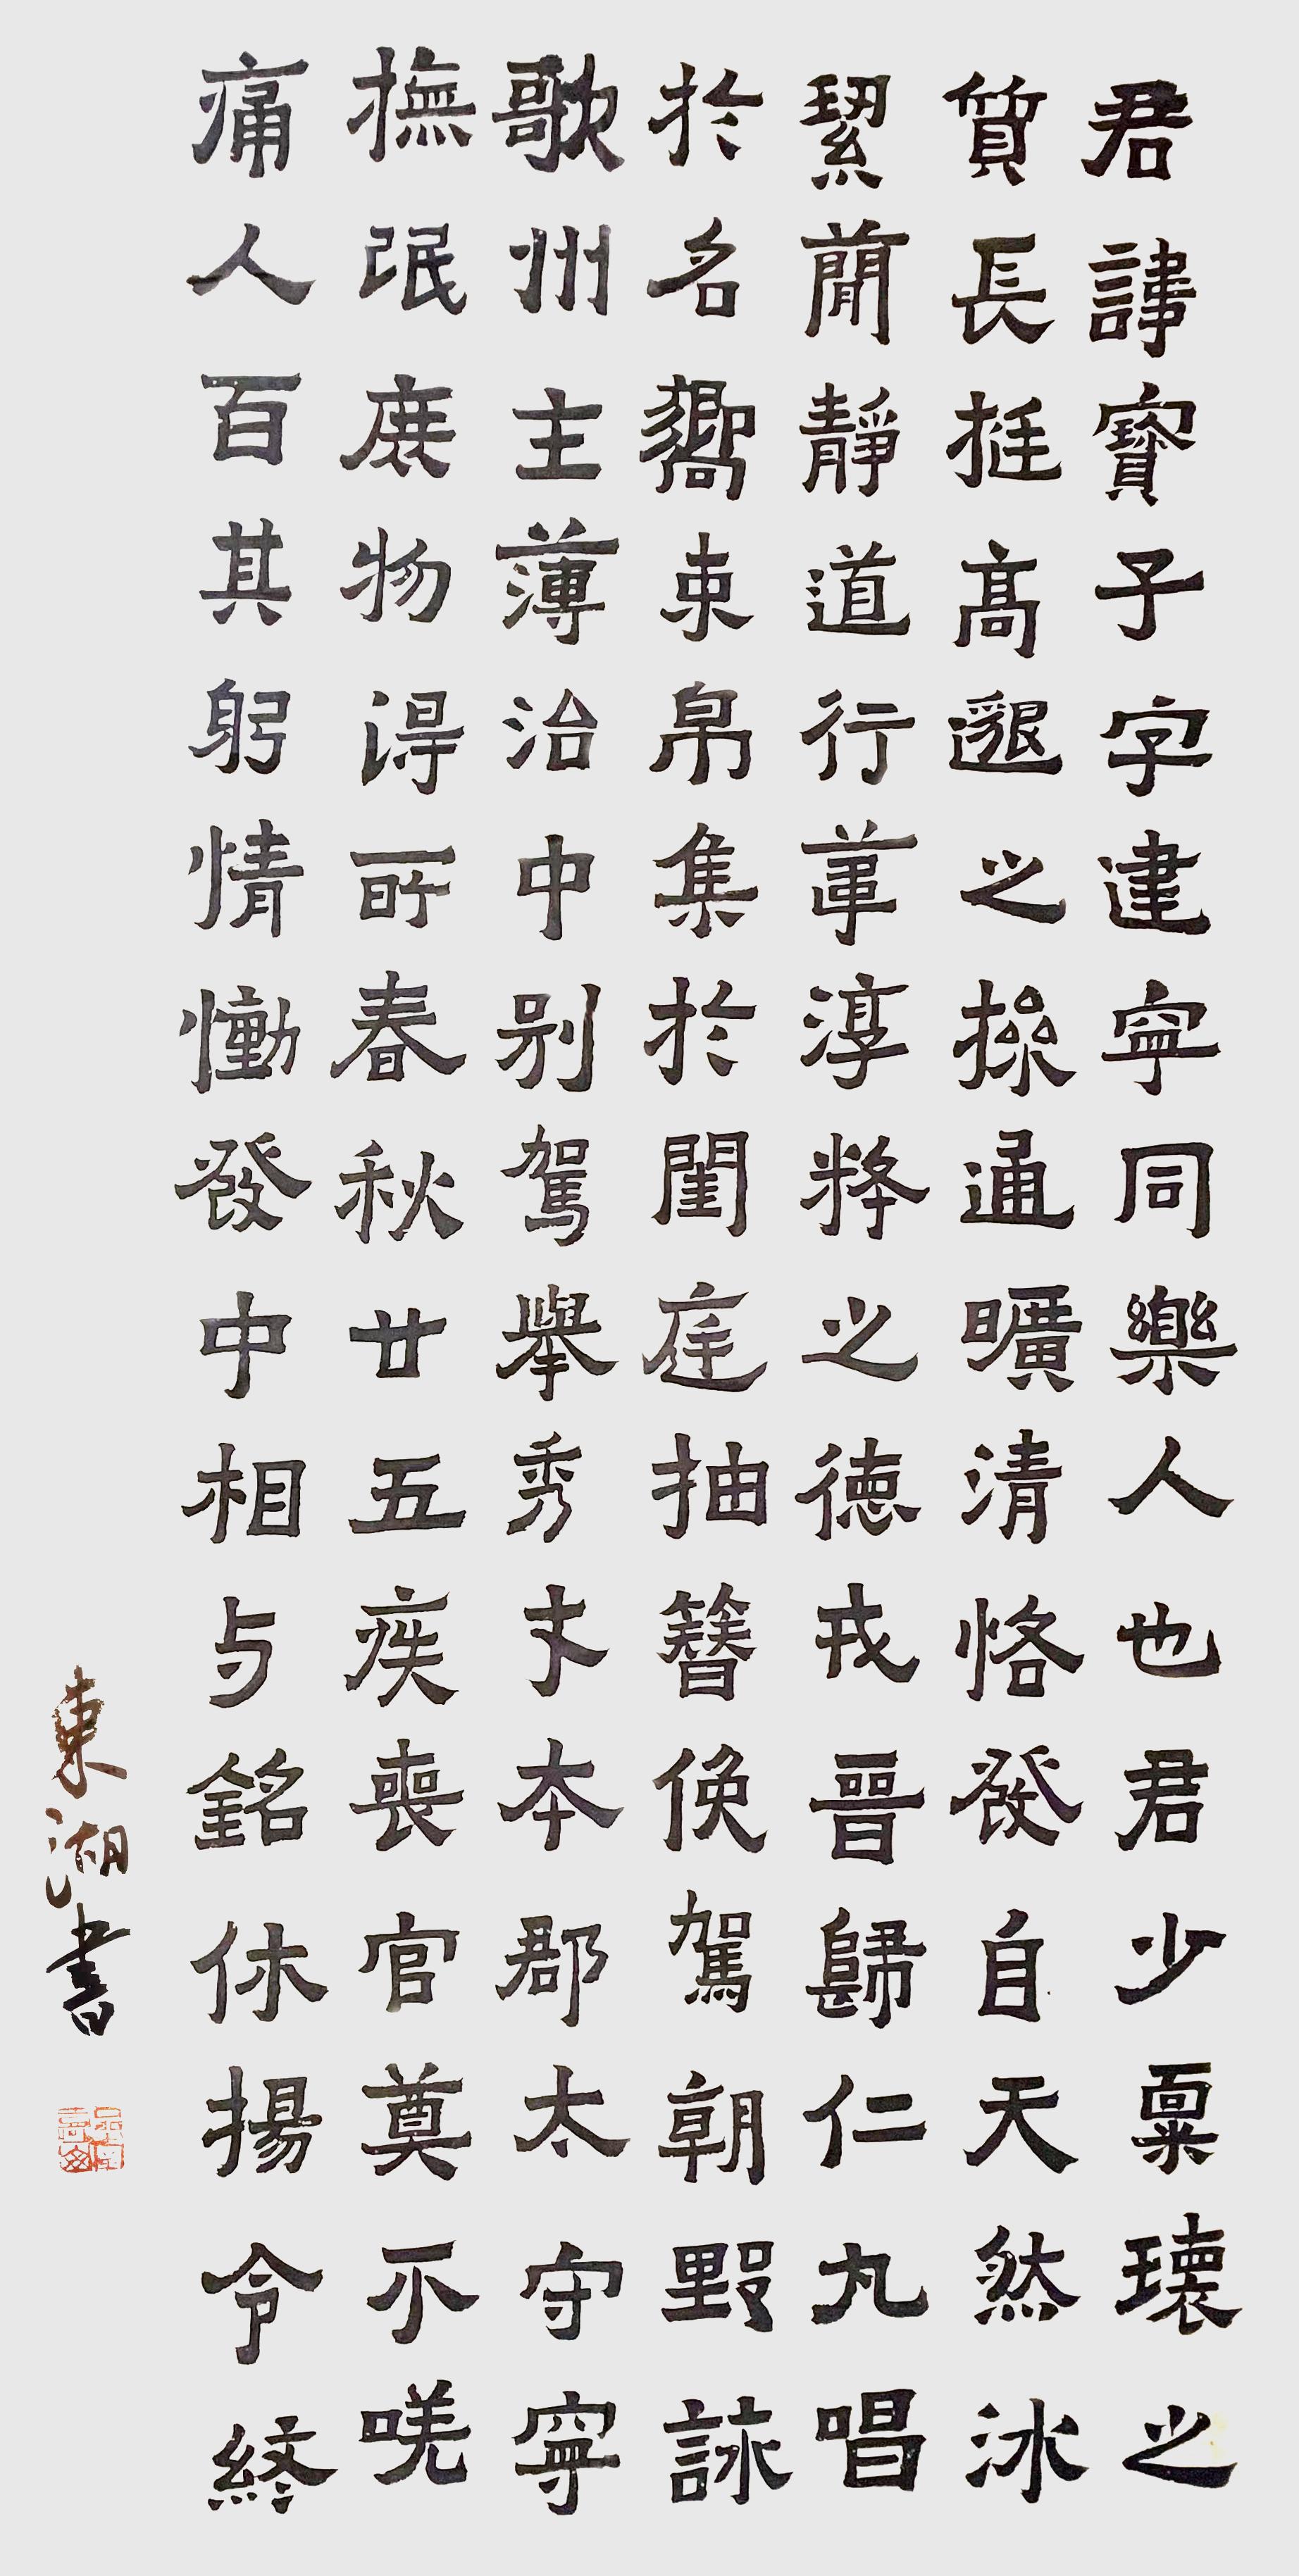 君諱寶子字建寧同樂人也君少稟瓌之
質長挺高邈之操通曠清恪發自天然冰
絜簡靜道行葦淳粹之德戎晉歸仁九唱
於名響束帛集於閨庭抽簪俟駕朝野詠
歌州主薄治中別駕舉秀才本郡太守寧
撫氓庶物得所春秋廿五疾喪官莫不嗟
痛人百其躬情慟發中相与銘休揚令終
東湖書